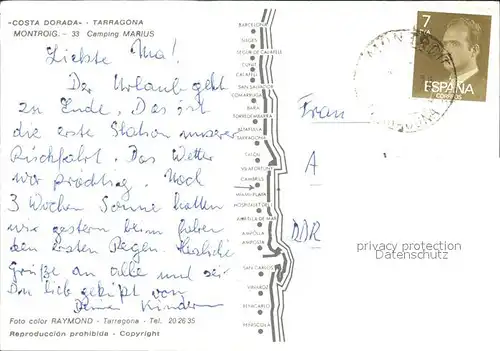 «COSTA DORADA» - TARRAGONA
MONTROIG. - 33 Camping MARIUS
Liebste Ma!
Der Urlaub geht
zu Ende. Das ist
die erste Station unserer
Rückfahrt. Das Wetter
war prächtig. Nach
3 Wochen Sonne hatten
wir gestern beim fahren
den ersten Regen. Herzliche
Grüße an alle und sei
Du lieb geküßt von
Deinen Kindern
Foto color RAYMOND - Tarragona - Tel. 20 26 35
Reproducción prohibida - Copyright
BARCELONA
SITGES
CUNIT
CALAFELL
SAN SALVADOR
COMARRUGA
BARA
TORREDEMBARRA
ALTAFULLA
TARRAGONA
SALOU
VILAFORTUNY
CAMBRILS
MIAMI PLAYA
HOSPITALET
AMETLLA DE MAR
AMPOLLA
AMPOSTA
SAN CARLOS
VINAROZ
BENICARLO
PEÑISCOLA
7
PTA
ESPAÑA
CORREOS
MONTROIG
Frau
A
DDR
privacy protection
Datenschutz